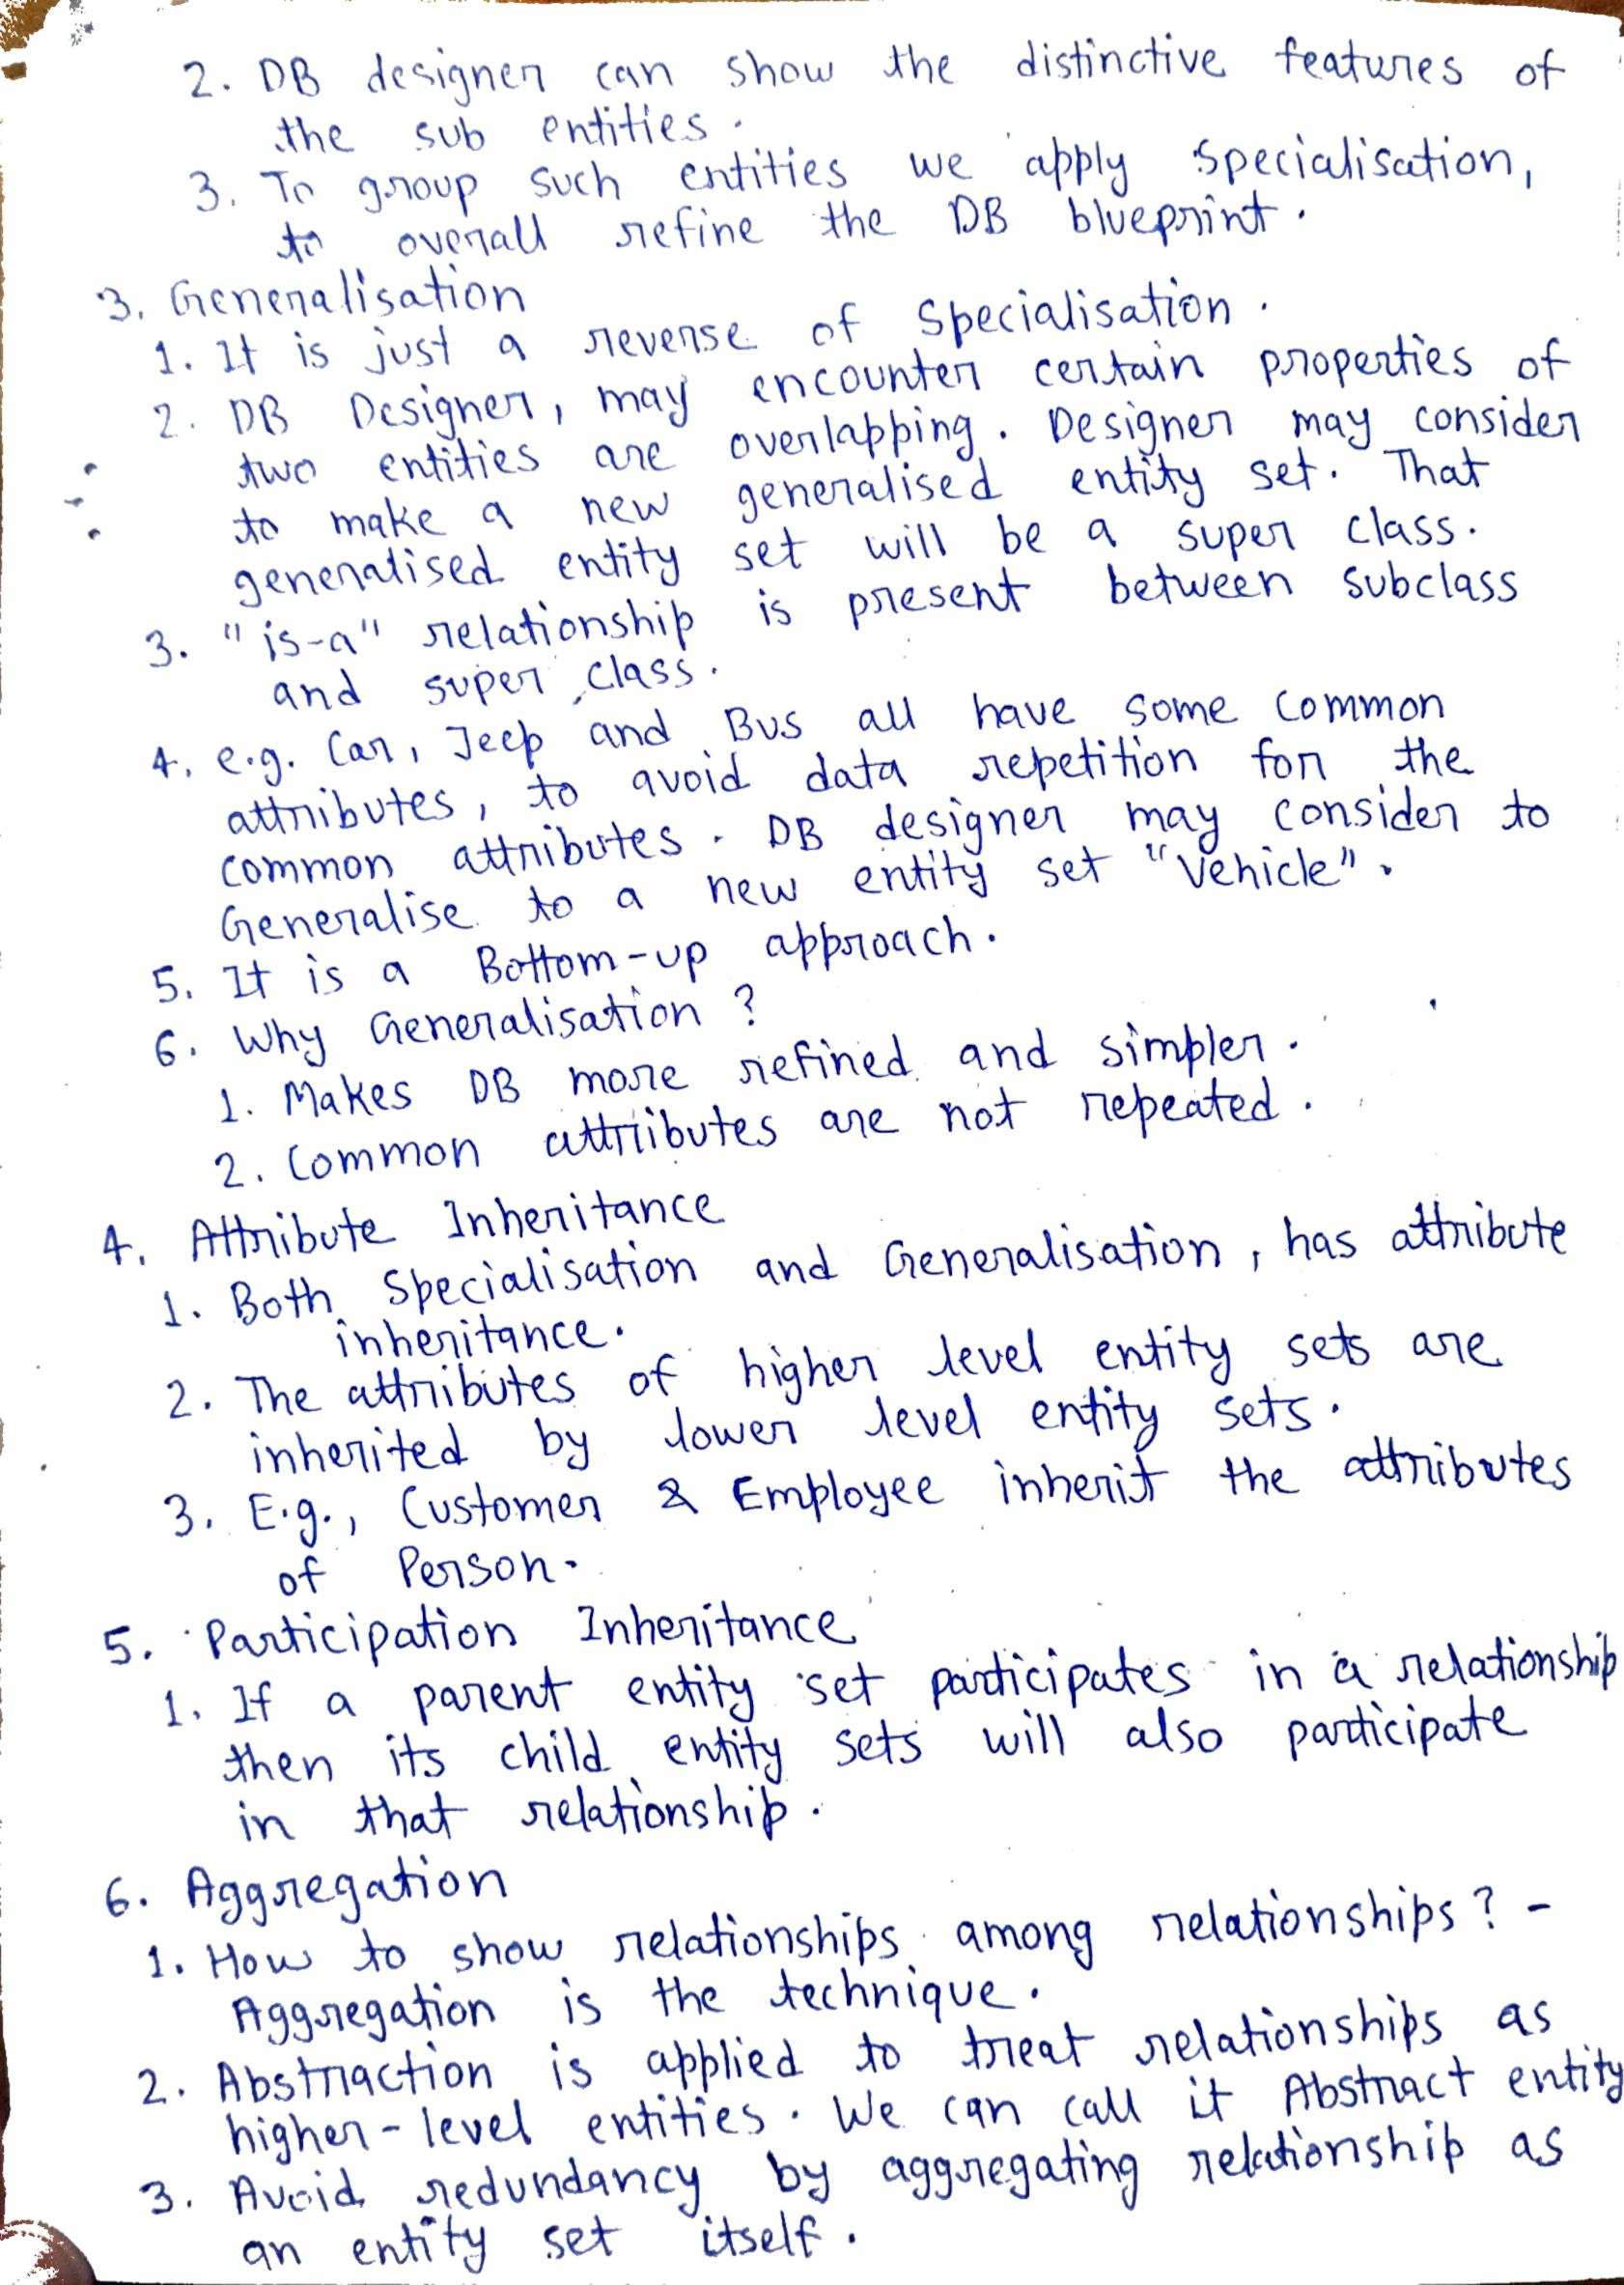 2. DB designer can show the distinctive features of
the sub entities.
3. To group such entities we apply specialisation,
to overall refine the DB blueprint.
3. Generalisation
1. It is just a reverse of Specialisation.
2. DB Designer, may encounter certain properties of
two entities are overlapping. Designer may consider
to make a new generalised entity set. That
generalised entity set will be a super class.
3. "is-a" relationship is present between subclass
and super class.
4. e.g. Car, Jeep and Bus all have some common
attributes, to avoid data repetition for the
common attributes. DB designer may consider to
Generalise to a new entity set "Vehicle".
5. It is a Bottom-up approach.
6. Why Generalisation?
1. Makes DB more refined and simpler.
2. Common attributes are not repeated.
4. Attribute Inheritance
1. Both Specialisation and Generalisation, has attribute
inheritance.
2. The attributes of higher level entity sets are
inherited by lower level entity sets.
3. E.g., Customer & Employee inherit the attributes
of Person.
5. Participation Inheritance
1. If a parent entity set participates in a relationship
then its child entity sets will also participate
in that relationship.
6. Aggregation
1. How to show relationships among relationships? -
Aggregation is the technique.
2. Abstraction is applied to treat relationships as
higher-level entities. We can call it Abstract entity
3. Avoid redundancy by aggregating relationship as
an entity set itself.